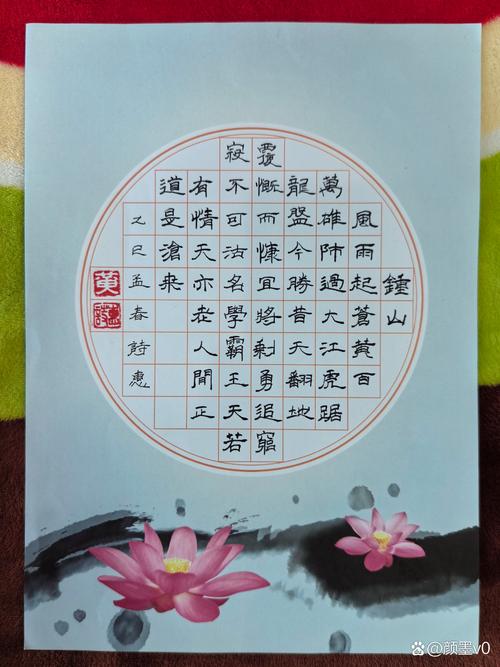 鍾山
風雨起蒼黃百
萬雄師過大江虎踞
龍盤今勝昔天翻地
覆慨而慷宜將剩勇追窮
寇不可沽名學霸王天若
有情天亦老人間正
道是滄桑
乙巳孟春詩惠
黃
@颜墨v0